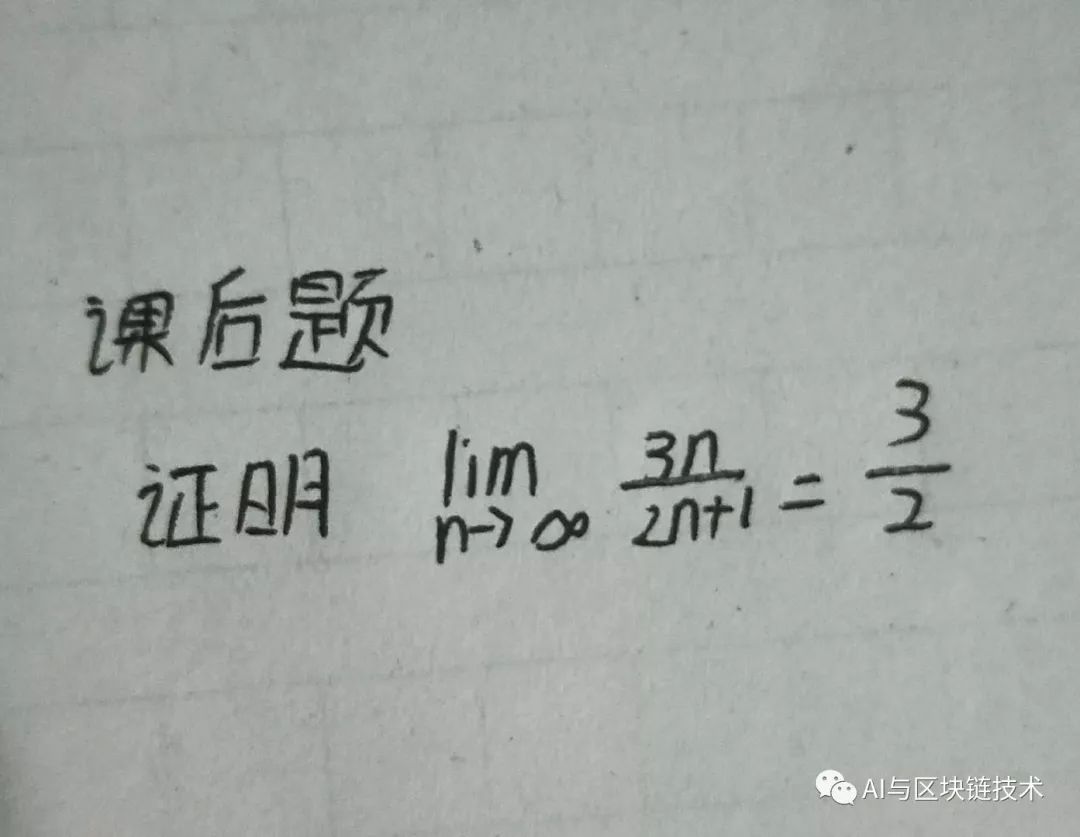 课后题
证明 lim n→∞ 3n/2n+1 = 3/2
AI与区块链技术